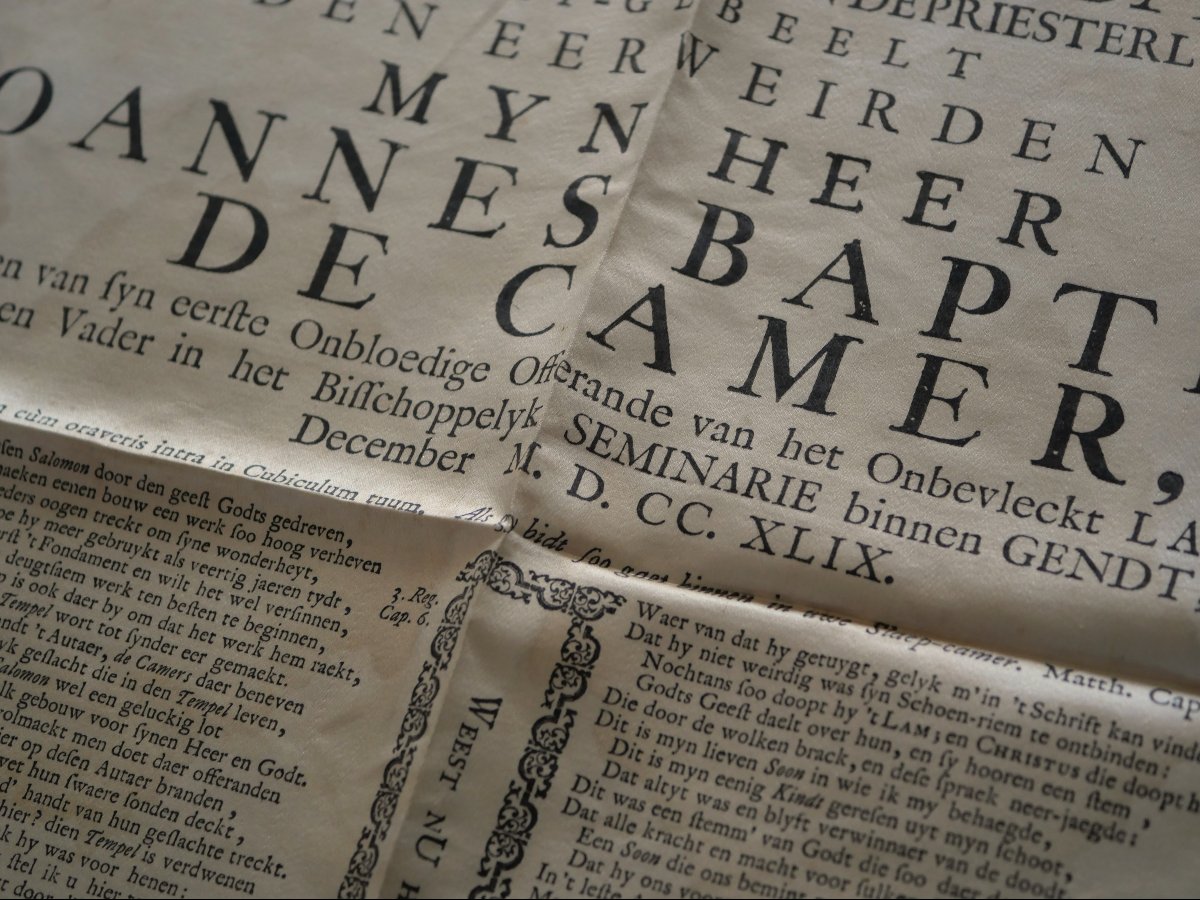 NDEPRIESTERL
DEN BEELT
EERWEIRDEN
MYN HEER
OANNES BAPT
DE CAMER,
en van ſyn eerſte Onbloedige Offerande van het Onbevleckt LA
en Vader in het Biſſchoppelyk SEMINARIE binnen GENDT,
December M. D. CC. XLIX.
cùm oraveris intra in Cubiculum tuum. Als gy bidt ſoo gaet binnen in uwe Slaep-camer. Matth. Cap
Salomon door den geeſt Godts gedreven,
maeken eenen bouw een werk ſoo hoog verheven
oogen treckt om ſyne wonderheyt,
hy meer gebruykt als veertig jaeren tydt,
't Fondament en wilt het wel verſinnen,
deugtſaem werk ten beſten te beginnen,
is ook daer by om dat het werk hem raekt,
Tempel wort tot ſynder eer gemaekt.
't Autaer, de Camers daer beneven
geſlacht die in den Tempel leven,
Salomon wel een geluckig lot
gebouw voor ſynen Heer en Godt.
volmaeckt men doet daer offeranden
op deſen Autaer branden,
hun ſwaere ſonden deckt,
d' handt van hun geſlachte treckt.
hier? dien Tempel is verdwenen
hy was voor henen:
ſtel ik u hier
3. Reg.
Cap. 6.
WEEST NU H
Waer van dat hy getuygt, gelyk m'in 't Schrift kan vinde
Dat hy niet weirdig was ſyn Schoen-riem te ontbinden:
Nochtans ſoo doopt hy 't LAM; en CHRISTUS die doopt h
Godts Geeſt daelt over hun, en ſy hooren een ſtem,
Die door de wolken brack, en deſe ſprack neer-jaegde:
Dit is myn lieven Soon in wie ik my behaegde,
Dit is myn eenig Kindt gereſen uyt myn ſchoot,
Dat altyt was en blyft verwinnaer van de doodt.
Dit was een ſtemm' van Godt die ſoo daer d
Dat alle kracht en macht voor ſulke
Een Soon die ons bemint
Dat hy ons voor
In 't leſte